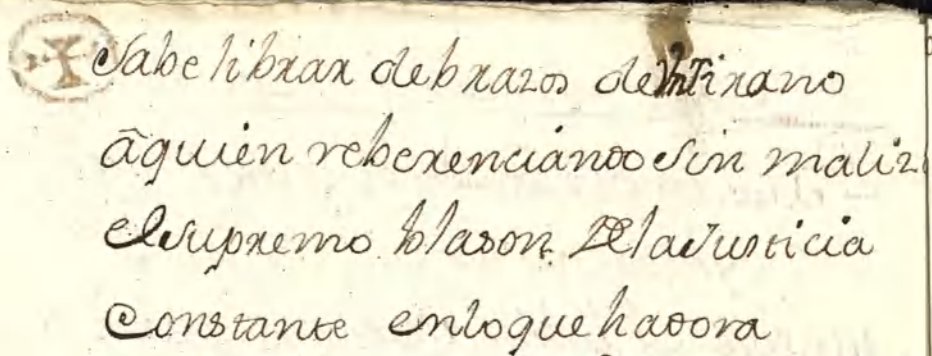 Sabe librar de brazos de Vn Tirano
â quien reberenciando sin maliz
el supremo blason De la Justicia
Constante en lo que hadora